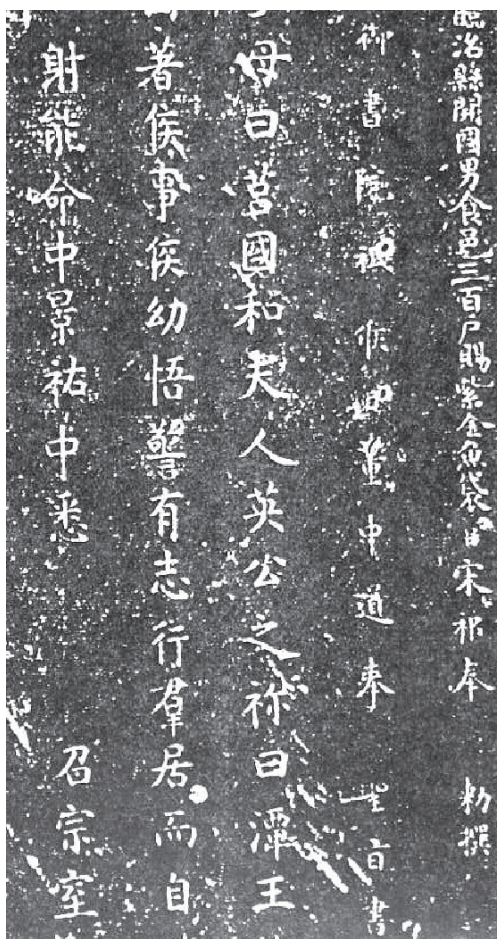 臨淄縣開國男食邑三百戶賜紫金魚袋臣宋祁奉 勑撰
御書院祗候臣董中道奉 聖旨書
母曰莒國和夫人英公之祢曰潭王
著侯事侯幼悟警有志行羣居而自
射能命中景祐中悉 召宗室